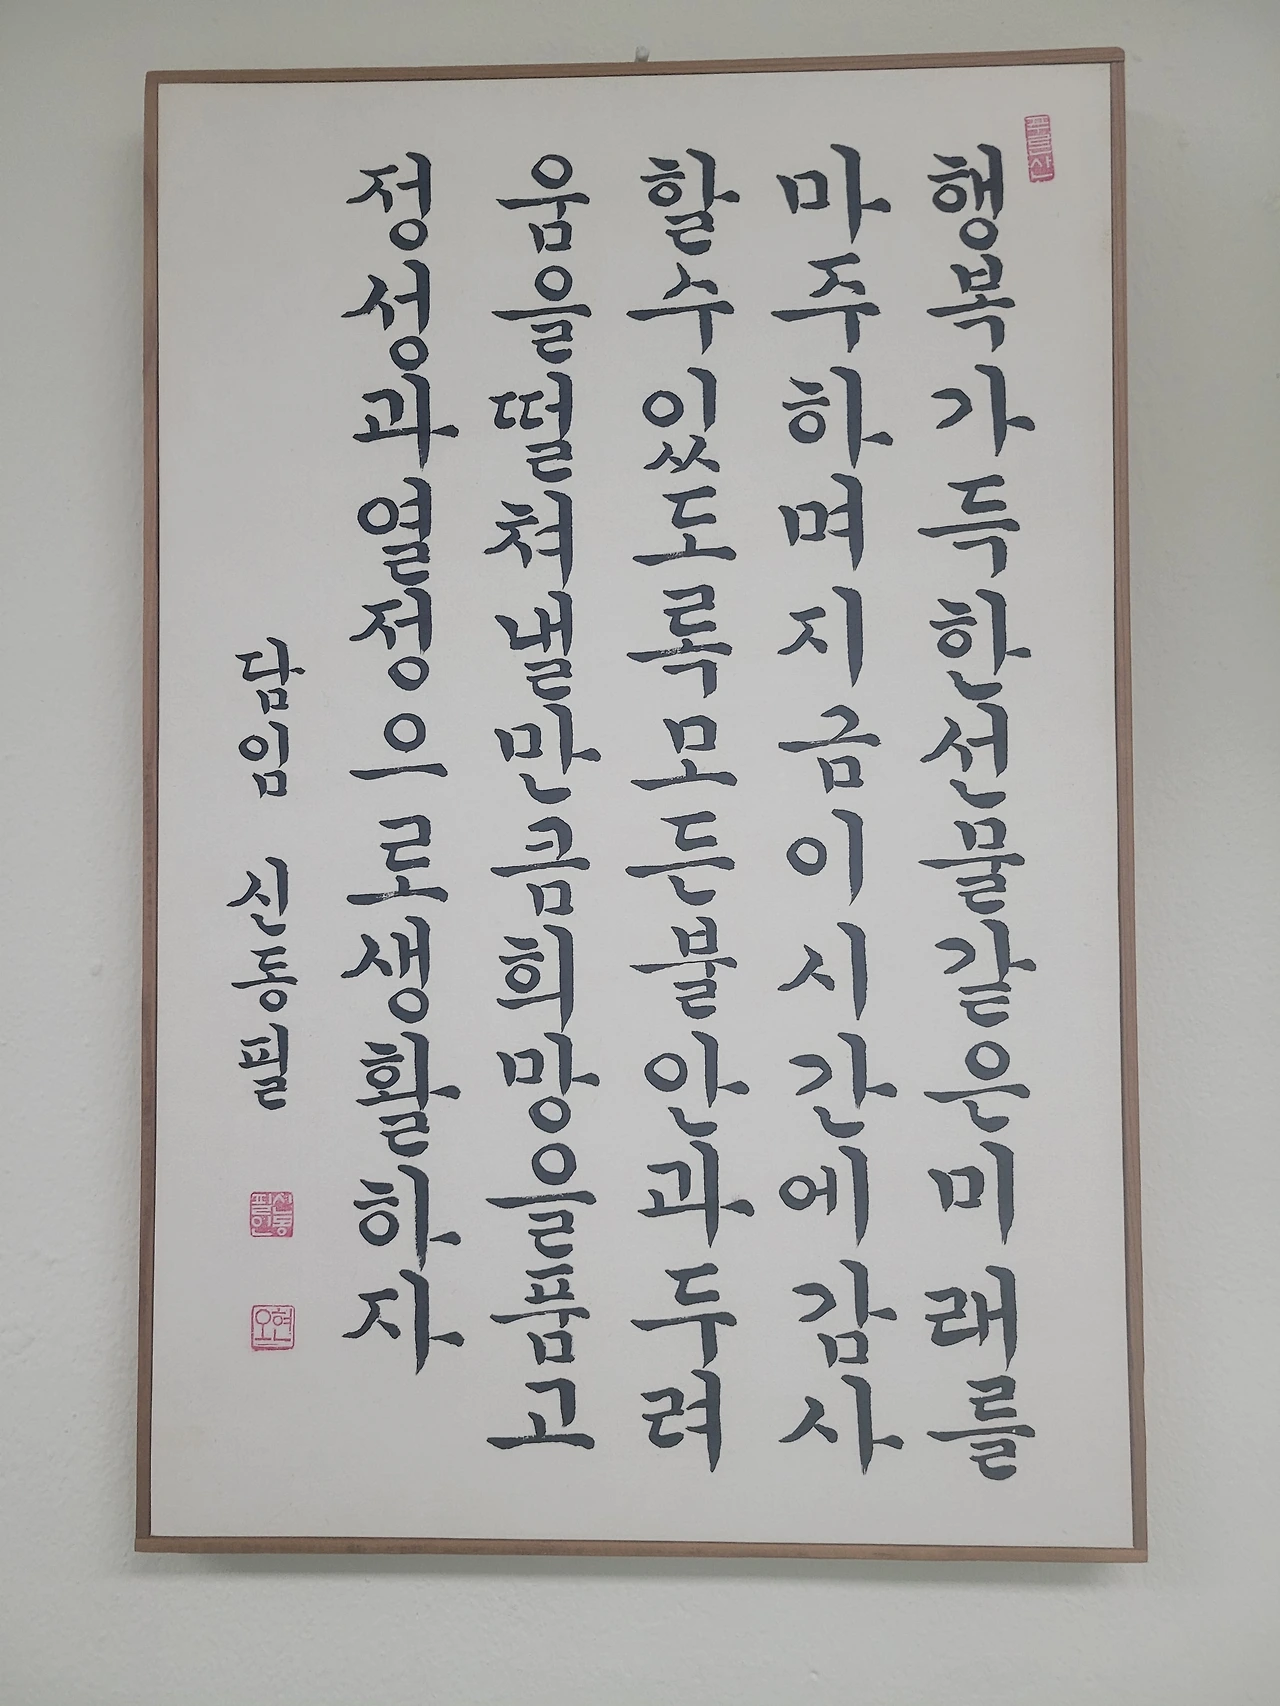 행복가득한선물같은미래를
마주하며지금이시간에감사
할수있도록모든불안과두려
움을떨쳐낼만큼희망을품고
정성과열정으로생활하자
담임 신동필
신동
필인
현
오